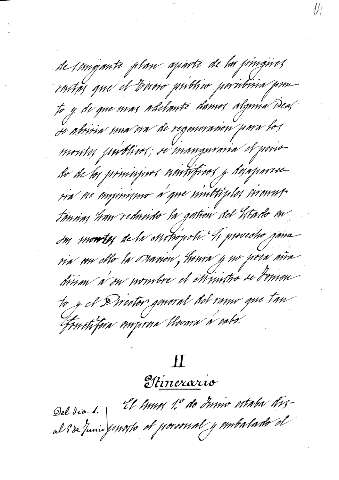 de semejante plan aparte de los pingües
reditos que el Tesoro público percibiria pron-
to y de que mas adelante damos alguna idea,
se abriria una era de regeneracion para los
montes públicos; se inauguraria el perio-
do de los principios cientificos y desaparece-
ria el á que multiples circuns-
tancias han reducido la gestion del Estado en
sus montes de la Metrópoli. Si provecho gana-
ria con ello la Nacion, honra y no poca aña-
dirian á su nombre el Ministro de Fomen-
to y el Director general del ramo que tan
fructifera empresa llevara á cabo.
II
Itinerario
Del dia 1.
al 2 de Junio
El lunes 1º de Junio estaba dis-
puesto el personal y embalado el